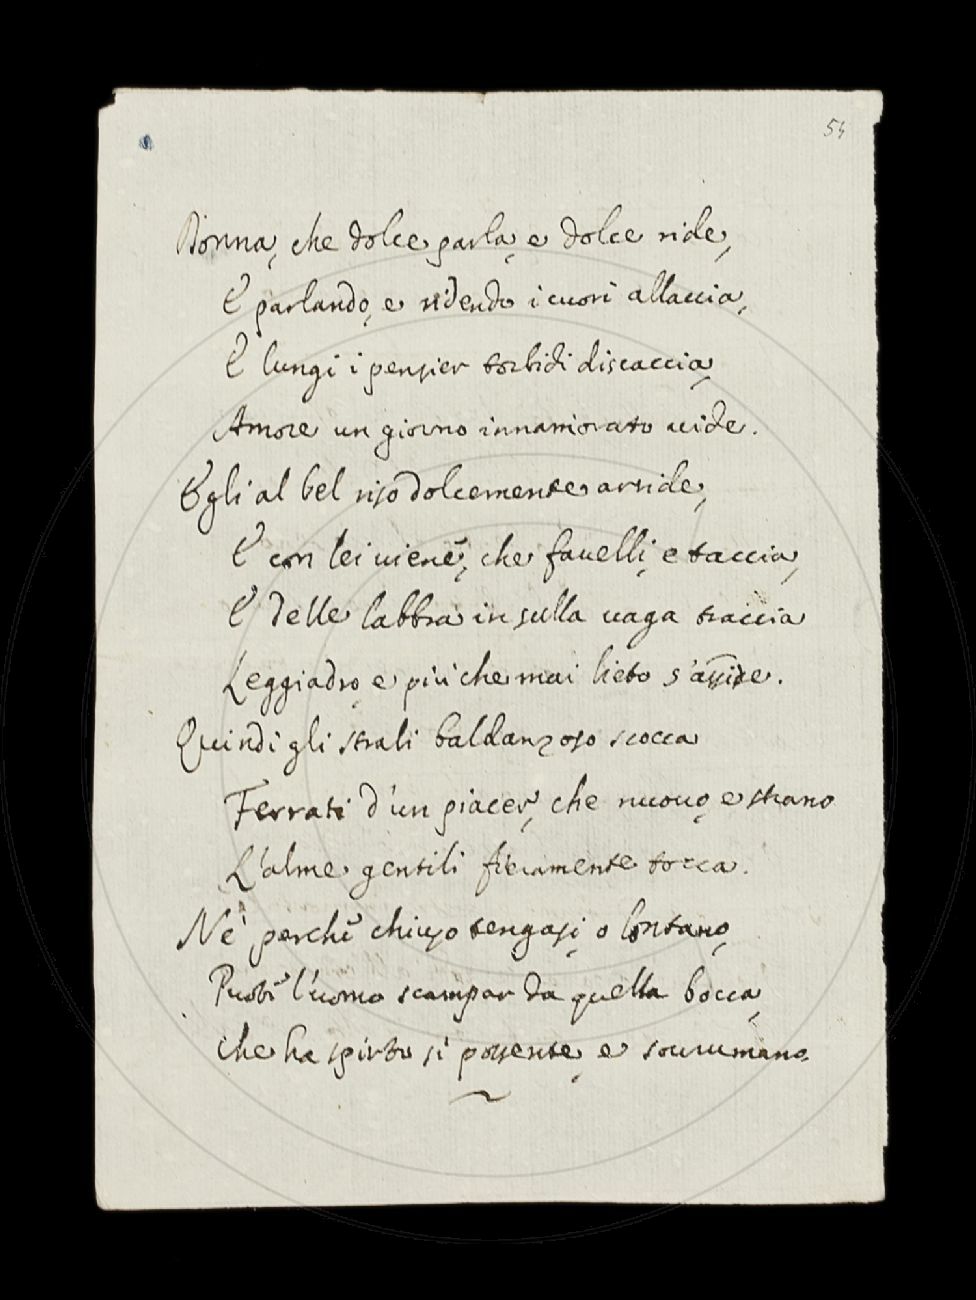 54
Donna, che dolce parla, e dolce ride,
E parlando, e ridendo i cuori allaccia,
E lungi i pensier torbidi discaccia,
Amore un giorno innamorato vide.
Egli al bel riso dolcemente arride,
E con lei viene, che favelli, e taccia,
E delle labbra in sulla vaga traccia
Leggiadro, e più che mai lieto s'asside.
Quindi gli strali baldanzoso scocca
Ferrati d'un piacer, che nuovo, e strano
L'alme gentili fieramente tocca.
Nè perchè chiuso tengasi, o lontano,
Puot l'uomo scampar da quella bocca,
Che ha spirto sì possente, e sovrumano.